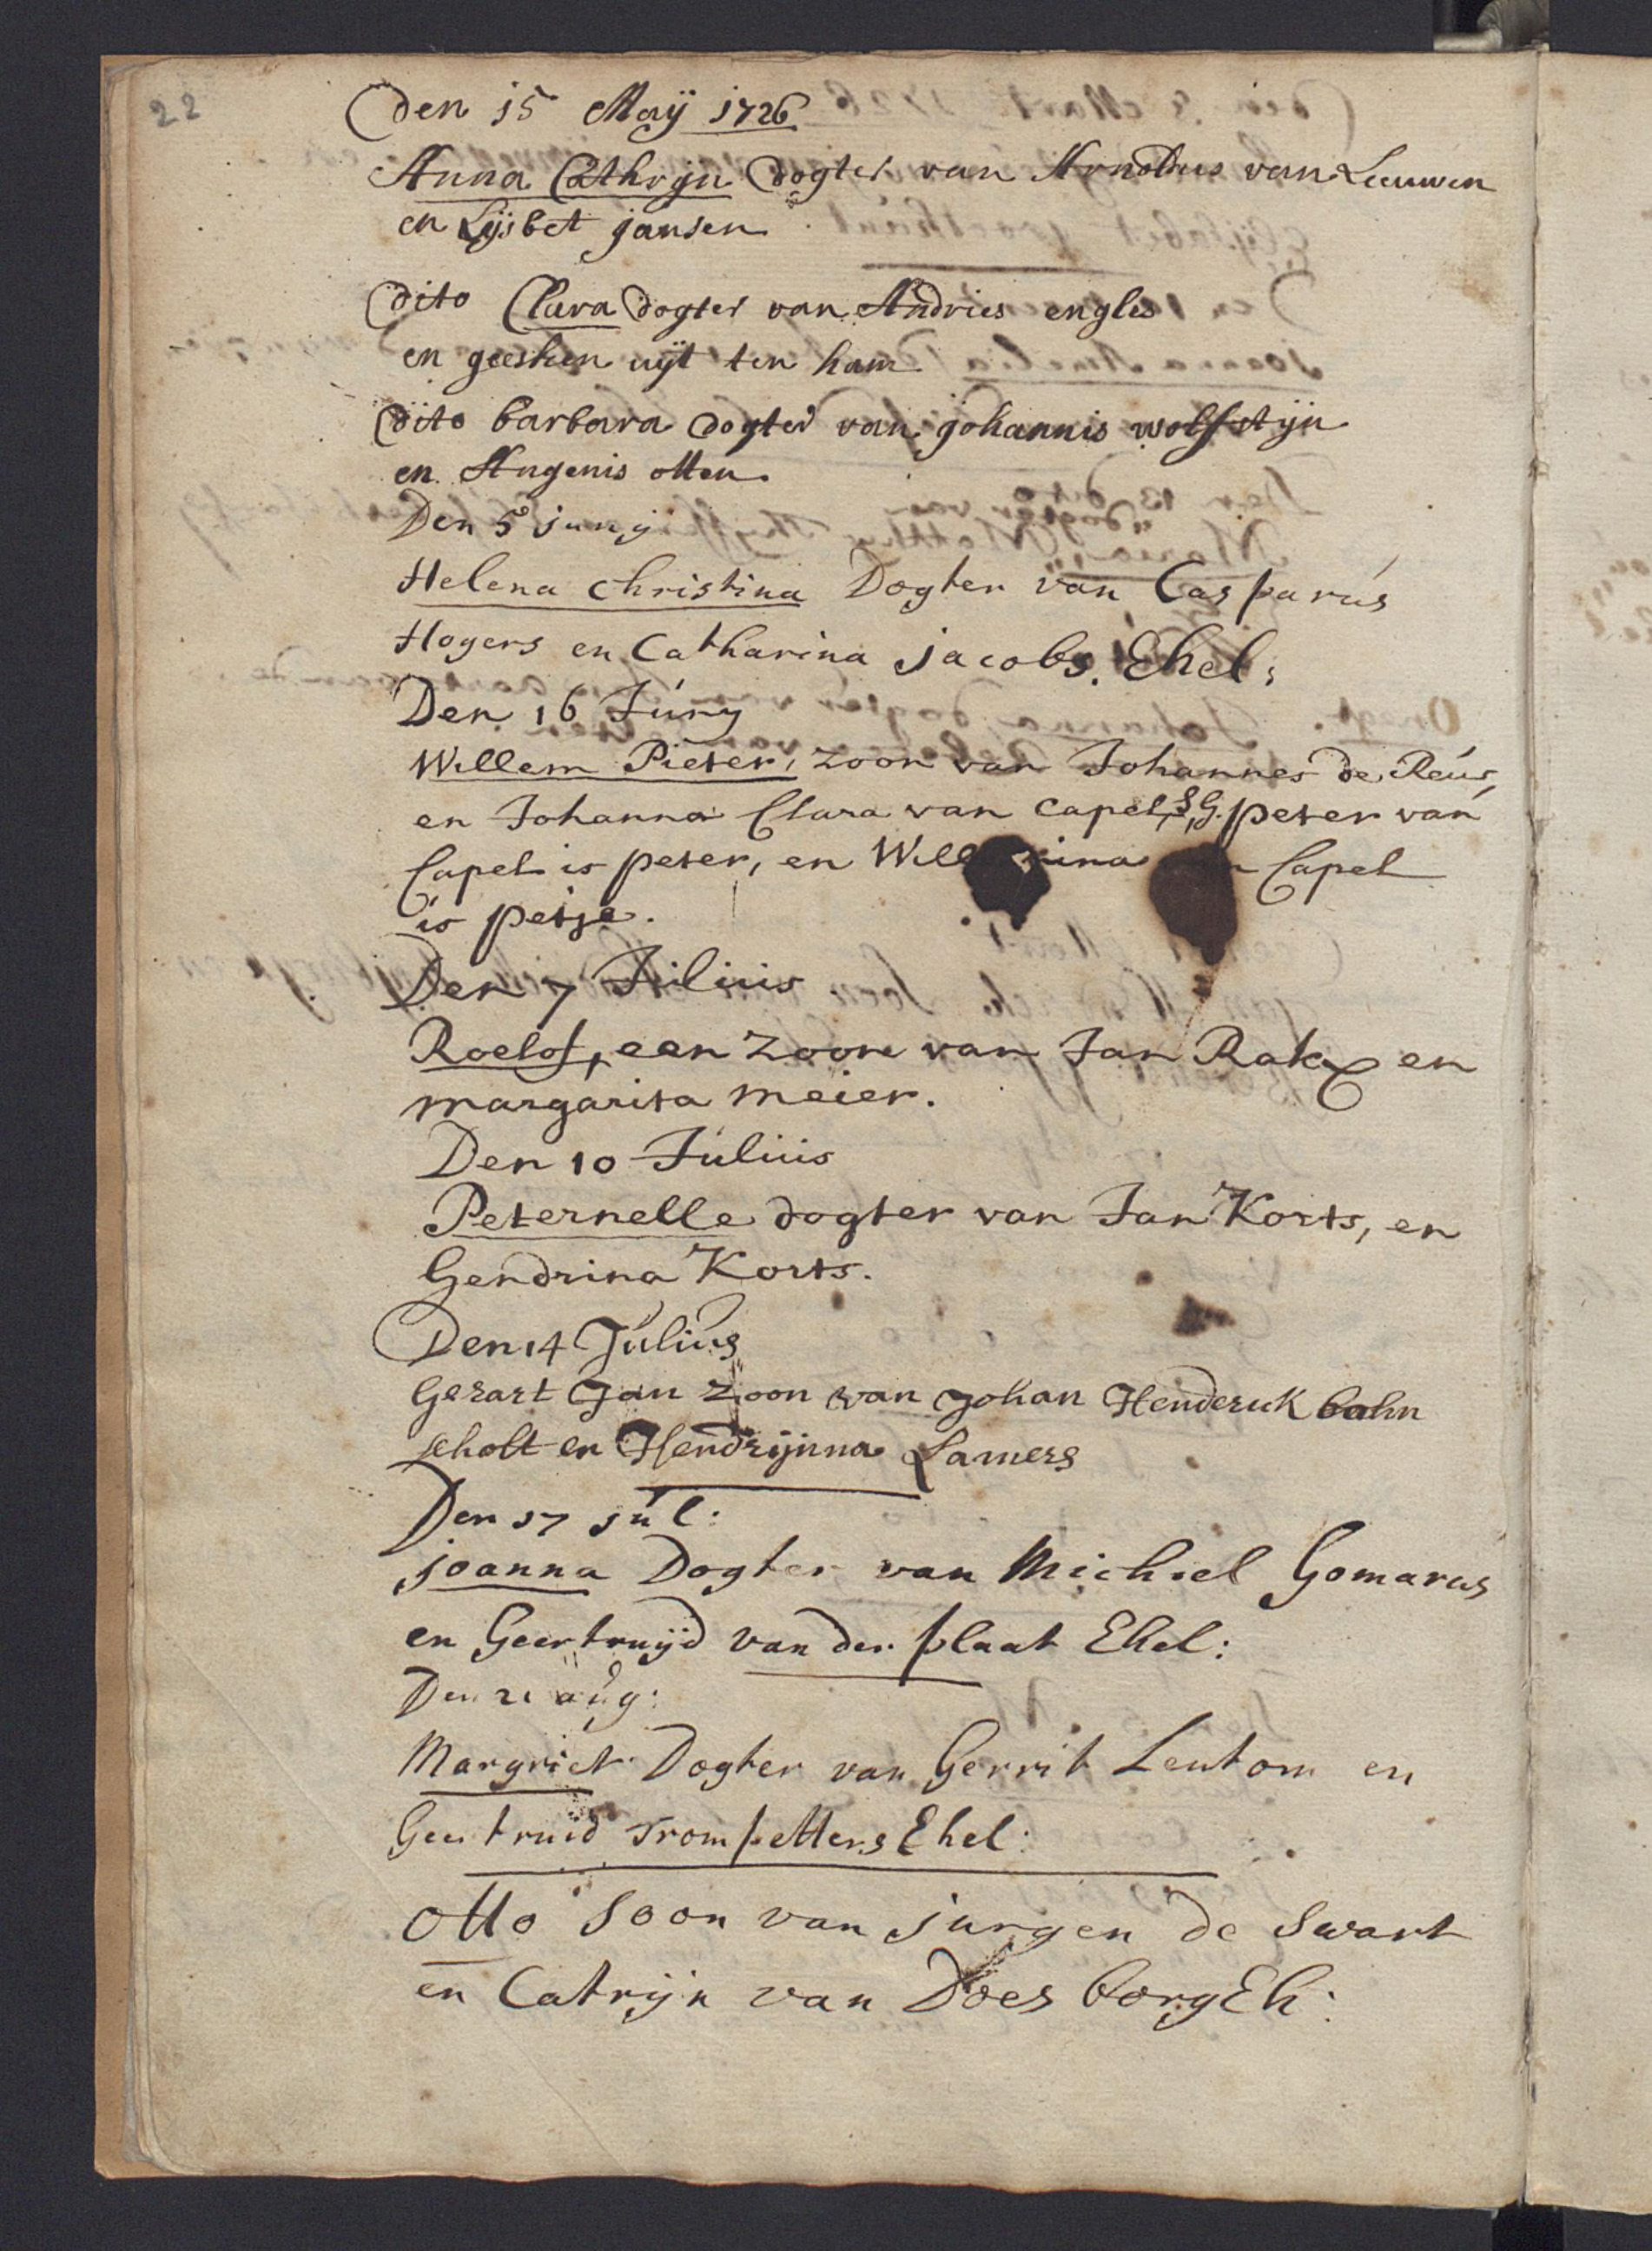 22
Den 15 Maÿ 1726
Anna Cathrijn dogter van Arnoldus van Leeuwen
en Lijsbet jansen
dito Clara dogter van Andries engles
en geesken uÿt ten ham
dito barbara dogter van johannis wolfstijn
en Angenis otten
Den 5 junÿ
Helena christina Dogter van Casparús
Hogers en Catharina jacobs. Ehel:
Den 16 Júny
Willem Pieter, zoon van Johannes de Reús,
en Johanna Clara van Capel, S. G. peter van
Capel is peter, en Will ina n Capel
is petje.
Den 7 Júliús
Roelof, een zoon van Jan Rakx en
margarita meier.
Den 10 Júliús
Peternelle dogter van Jan Korts, en
Gendrina Korts.
Den 14 Júliús
Gerart Jan zoon van Johan Henderik bahn
scholt en Hendrijnna Lamers
Den 17 júl:
joanna Dogter van Michiel Gomarus
en Geertruÿd van der plaat Ehel:
Den 21 aúg:
Margriet Dogter van Gerrit Lentom en
Geertruid Trompetters Ehel:
Otto Soon van jurgen de Swart
en Catrijn van Doesborg Eh: